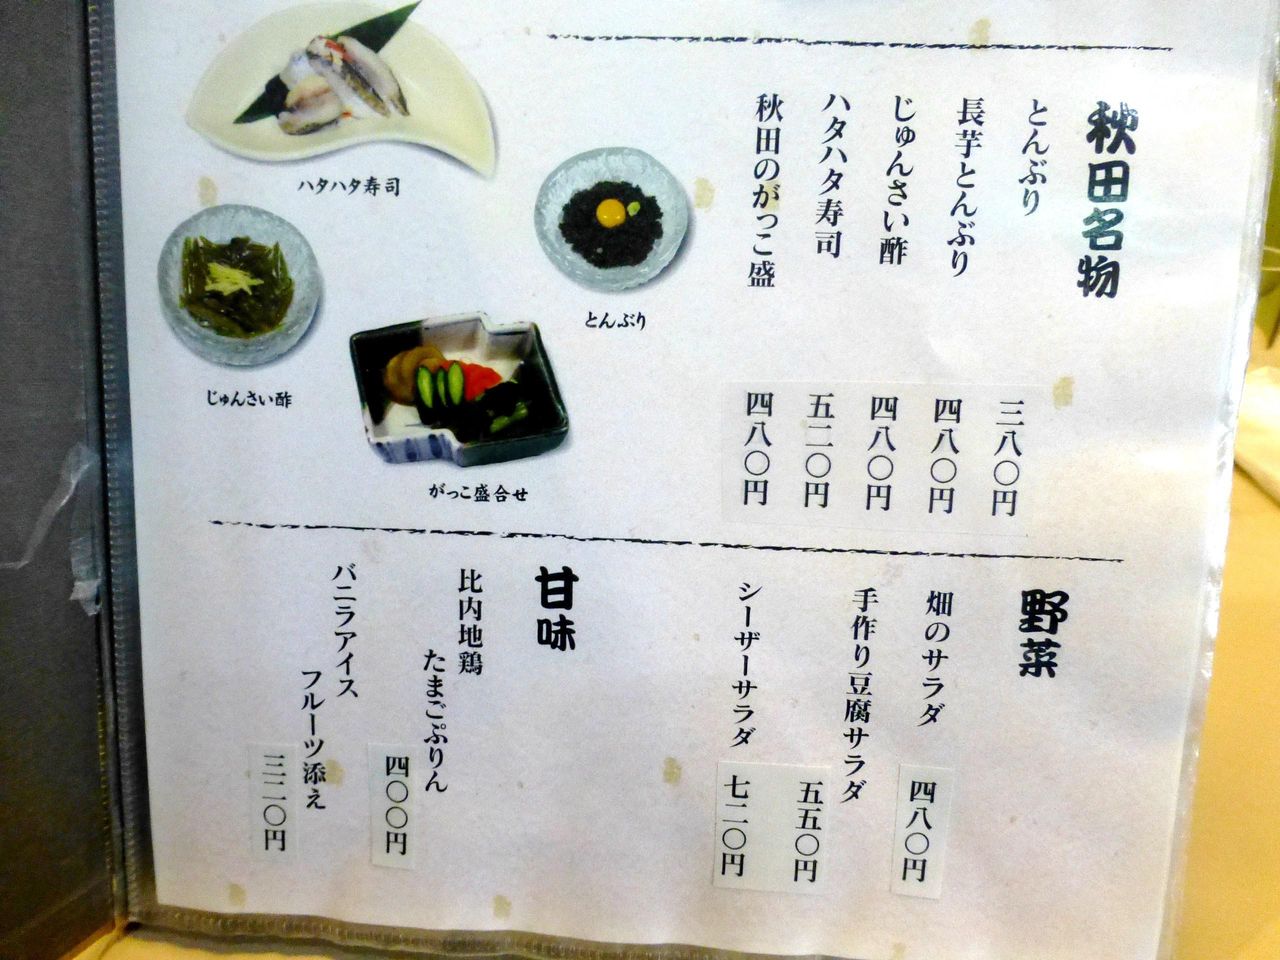 秋田名物
とんぶり
三八〇円
長芋とんぶり
四八〇円
じゅんさい酢
四八〇円
ハタハタ寿司
五二〇円
秋田のがっこ盛
四八〇円
ハタハタ寿司
とんぶり
じゅんさい酢
がっこ盛合せ
野菜
畑のサラダ
四八〇円
手作り豆腐サラダ
五五〇円
シーザーサラダ
七二〇円
甘味
比内地鶏
たまごぷりん
四〇〇円
バニラアイス、
フルーツ添え
三二〇円